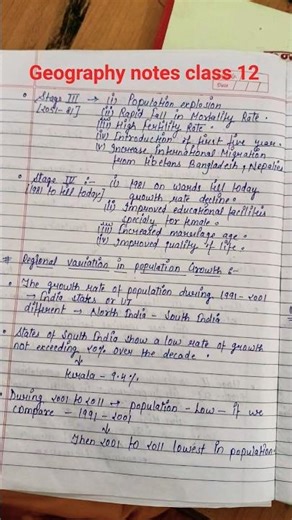 Geography notes class 12
Date
• Stage III → (i) Population explosion
[2051-81] (ii) Rapid fall in Mortality Rate.
(iii) High Fertility Rate.
(iv) Introduction of first five year.
(v) Increase International Migration
from tibetans Bangladesh, Nepalies
• Stage IV :- (i) 1981 on wards till today
[1981 to till today] growth rate decline.
(ii) Improved educational facilities
specialy for female.
(iii) Increased marriage age.
(iv) Improved quality of life.
# Regional variation in population Growth :-
• The growth rate of population during 1991-2001
→ India states or UT
different → North India - South India
• States of South India show a low rate of growth
not exceeding 20% over the decade.
↓
Kerala - 9.4%
• During 2001 to 2011 → population - Low - if we
compare - 1991 - 2001
↓
Then 2001 to 2011 lowest in population